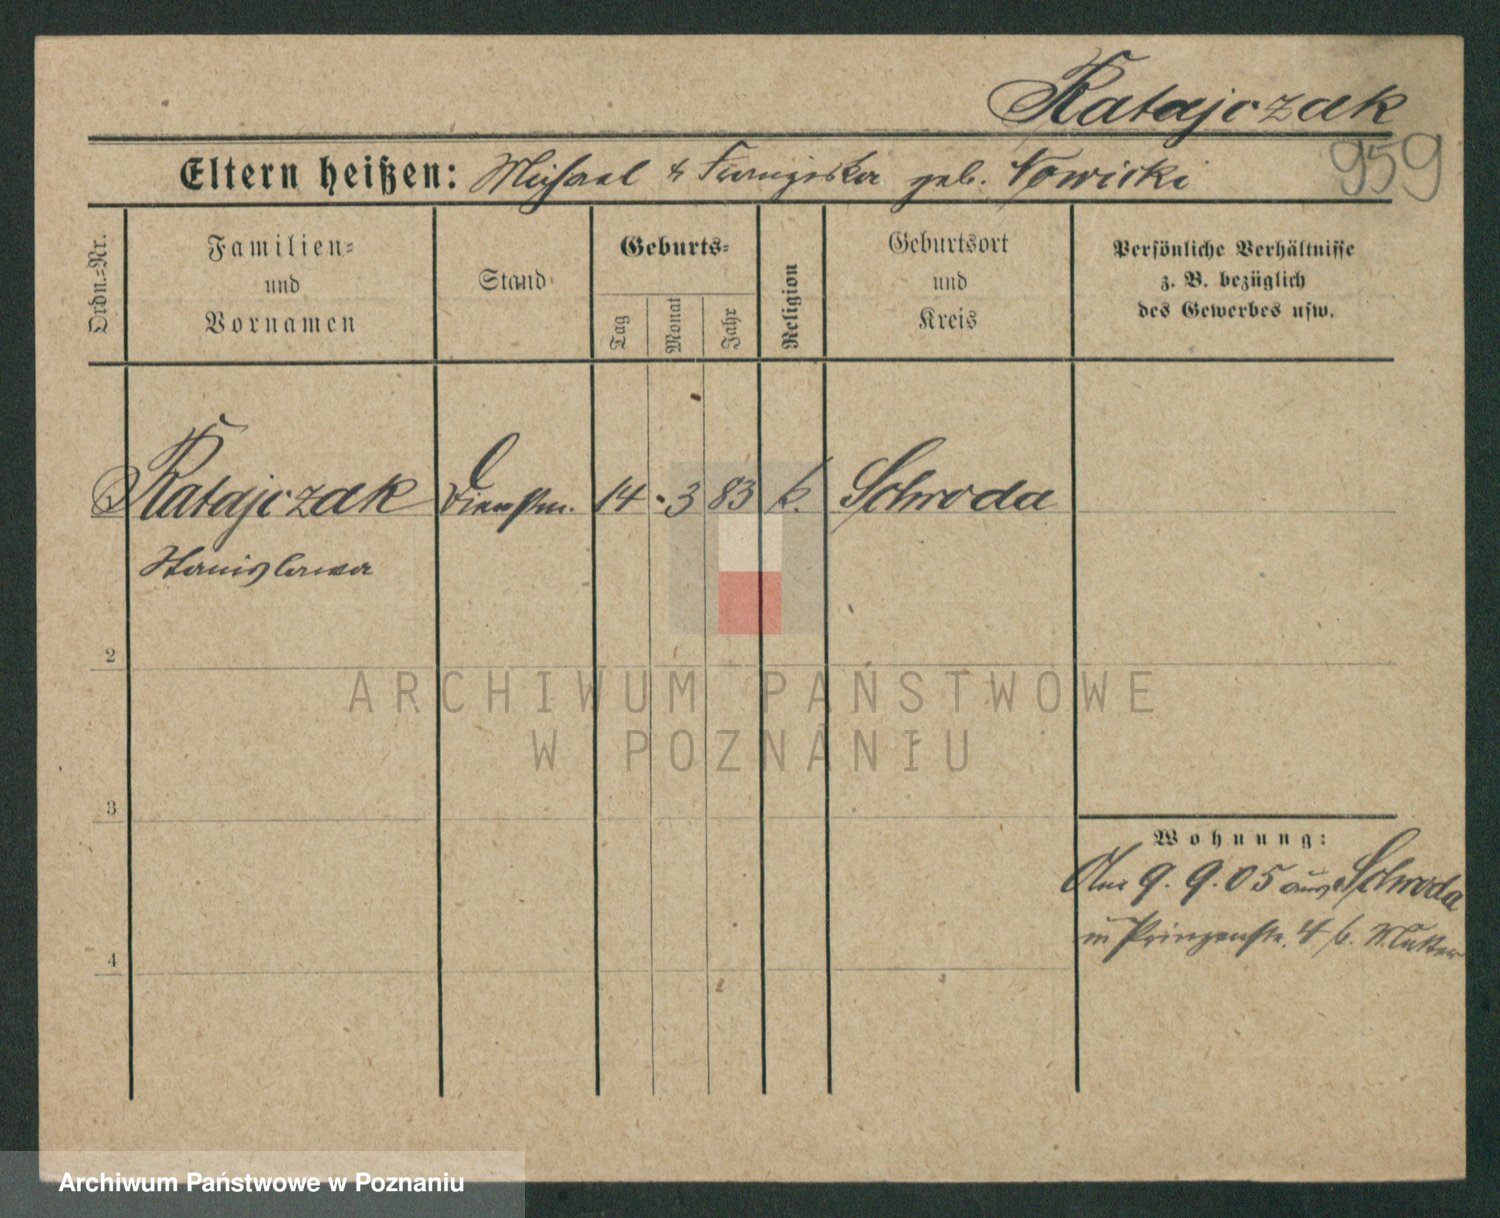 Ratajczak
959
Eltern heißen: Michael & Franziska geb. Nowicki
Ordn.=Nr.
Familien=
und
Vornamen
Stand
Geburts=
Tag
Monat
Jahr
Religion
Geburtsort
und
Kreis
Persönliche Verhältnisse
z. B. bezüglich
des Gewerbes usw.
Ratajczak Dienstm. 14 3 83 k. Schroda
Stanislawa
2
3
4
Wohnung:
Am 9. 9. 05 aus Schroda
in Prinzenstr. 4 b. Mutter
ARCHIWUM PAŃSTWOWE
W POZNANIU
Archiwum Państwowe w Poznaniu